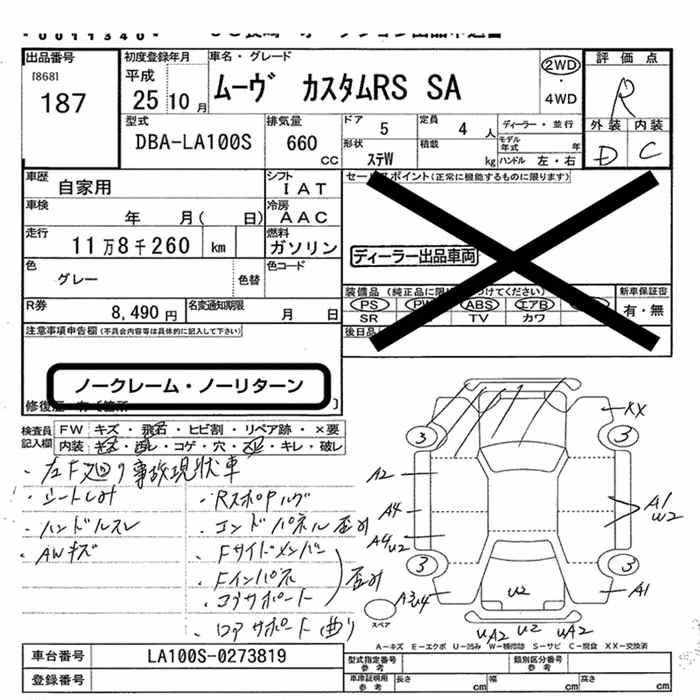 *0011340*
出品番号
[868]
187
初度登録年月
平成
25 10月
車名・グレード
ムーヴ カスタムRS SA
2WD
・
4WD
評価点
R
外装 内装
D C
型式
DBA-LA100S
排気量
660
CC
ドア
5
定員
4 人
ディーラー・並行
モデル年式 年
形状
ステW
積載
kg
ハンドル 左・右
車歴
自家用
シフト
IAT
車検
年 月( 日)
冷房
AAC
走行
11万8千260 km
燃料
ガソリン
色
グレー
色替
色コード
R券
8,490円
名変通知期限
月 日
セールスポイント(正常に機能するものに限ります)
ディーラー出品車両
装備品 (純正品に限
つけてください)
新車保証書
有・無
PS
ABS
エアB
SR
TV
カワ
後日品
注意事項申告欄(不具合内容等は具体的に記入して下さい)
ノークレーム・ノーリターン
検査員
記入欄
FW キズ・飛石・ヒビ割・リペア跡・×要
内装 ・コゲ・穴・ ・キレ・破レ
・左F廻り事故現状車
・シートしみ
・ハンドルスレ
・AWキズ
・コンドパネル歪み
・Fサイドメンバー
・Fインパネ
・コアサポート
歪み
・ロアサポート曲り
3
3
3
3
XX
A2
A4
A4 U2
A3U4
A1
W2
A1
U2
UA2 U2 UA2
スペア
A-キズ E-エクボ U-凹み W-補修跡 S-サビ C-腐食 XX-交換済
車台番号
LA100S-0273819
登録番号
型式指定番号
参考
類別区分番号
参考
車庫証明用
参考
長さ cm
幅 cm
高さ cm